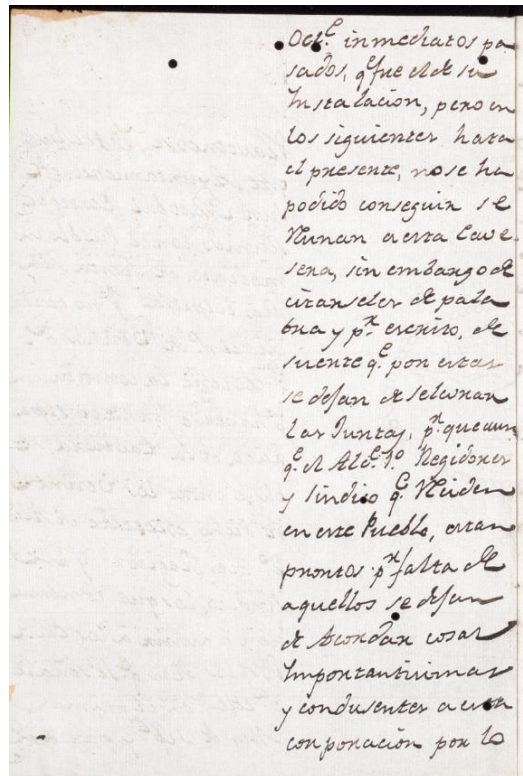 Octe. inmediatos pa
sados, qe fue el de su
Instalacion, pero en
los siguientes hasta
el presente, no se ha
podido conseguir se
Reunan a esta Cave
sera, sin embargo de
citarseles de pala
bra y pr. escrito, de
suerte qe. por estar
se dejan de selevrar
las Juntas, pr. que aun
qe. el Alde. 1o. Regidores
y Sindico qe. Reciden
en este Pueblo, estan
prontos pr. falta de
aquellos se dejan
de Acordar cosas
Importantisimas
y condusentes a esta
corporación por lo